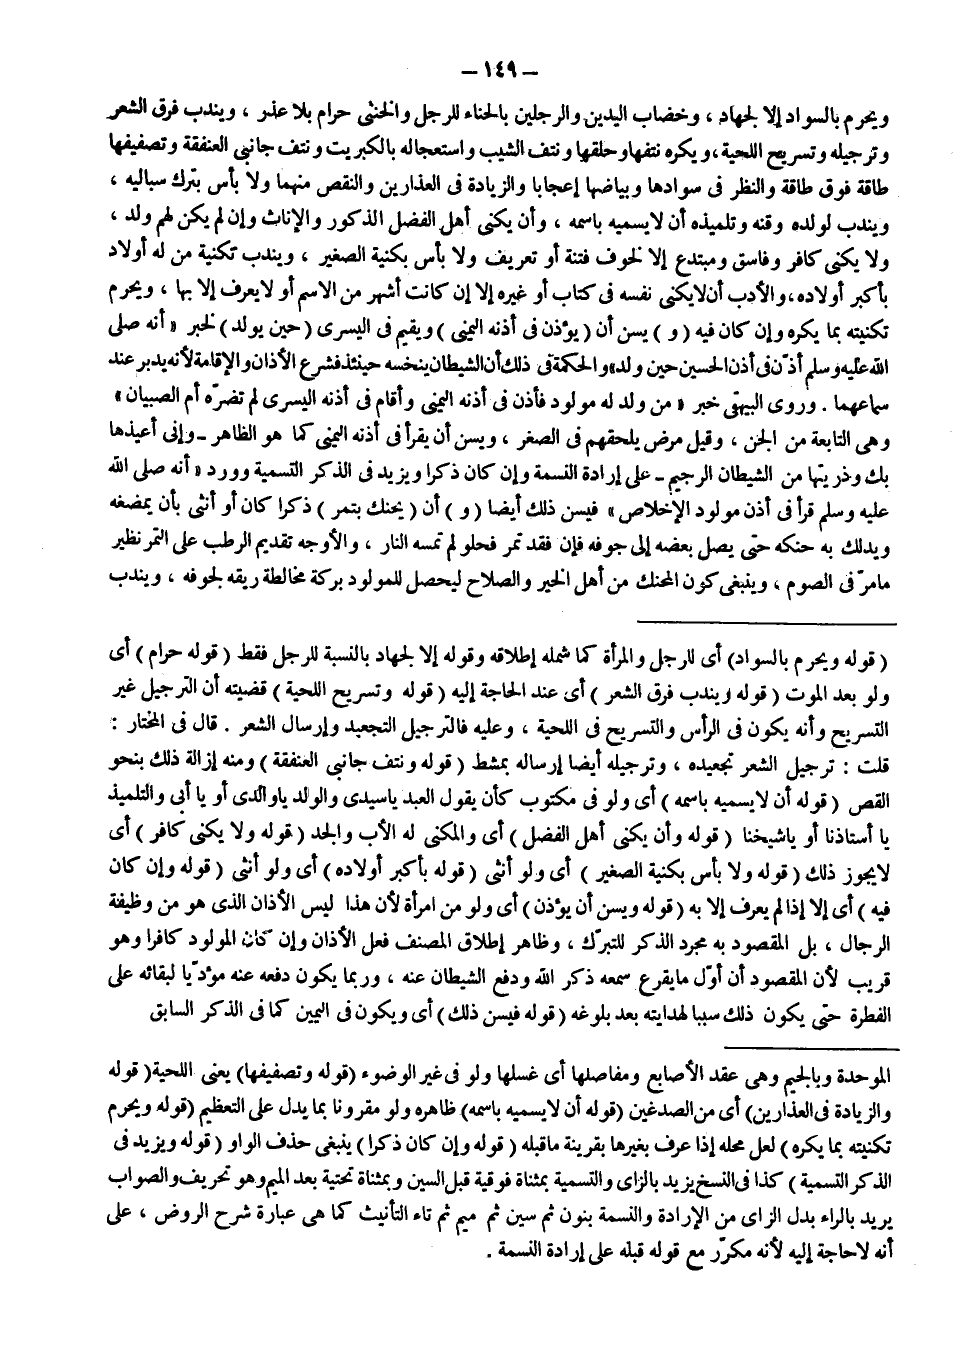 – ١٤٩ –
ويحرم بالسواد إلا لجهاد ، وخضاب اليدين والرجلين بالحناء للرجل والخنثى حرام بلا عذر ، ويندب فرق الشعر
وترجيله وتسريح اللحية، ويكره نتفها وحلقها ونتف الشيب واستعجاله بالكبريت ونتف جانبى العنفقة وتصفيفها
طاقة فوق طاقة والنظر فى سوادها وبياضها إعجابا والزيادة فى العذارين والنقص منهما ولا بأس بترك سباليه ،
ويندب لولده وقنه وتلميذه أن لايسميه باسمه ، وأن يكنى أهل الفضل الذكور والإناث وإن لم يكن لهم ولد ،
ولا يكنى كافر وفاسق ومبتدع إلا لخوف فتنة أو تعريف ولا بأس بكنية الصغير ، ويندب تكنية من له أولاد
بأكبر أولاده، والأدب أن لايكنى نفسه فى كتاب أو غيره إلا إن كانت أشهر من الاسم أو لايعرف إلا بها ، ويحرم
تكنيته بما يكره وإن كان فيه ( و ) يسن أن ( يؤذن فى أذنه اليمنى ) ويقيم فى اليسرى ( حين يولد ) لخبر « أنه صلى
الله عليه وسلم أذّن فى أذن الحسين حين ولد» والحكمة فى ذلك أن الشيطان ينخسه حينئذ فشرع الأذان والإقامة لأنه يدبر عند
سماعهما . وروى البيهقى خبر « من ولد له مولود فأذن فى أذنه اليمنى وأقام فى أذنه اليسرى لم تضرّه أم الصبيان »
وهى التابعة من الجن ، وقيل مرض يلحقهم فى الصغر ، ويسن أن يقرأ فى أذنه اليمنى كما هو الظاهر – وإنى أعيذها
بك وذريتها من الشيطان الرجيم – على إرادة النسمة وإن كان ذكرا ويزيد فى الذكر التسمية وورد « أنه صلى الله
عليه وسلم قرأ فى أذن مولود الإخلاص » فيسن ذلك أيضا ( و ) أن ( يحنك بتمر ) ذكرا كان أو أنثى بأن يمضغه
ويدلك به حنكه حتى يصل بعضه إلى جوفه فإن فقد تمر فحلو لم تمسه النار ، والأوجه تقديم الرطب على التمر نظير
مامرّ فى الصوم ، وينبغى كون المحنك من أهل الخير والصلاح ليحصل للمولود بركة مخالطة ريقه لجوفه ، ويندب
( قوله ويحرم بالسواد ) أى للرجل والمرأة كما شمله إطلاقه وقوله إلا لجهاد بالنسبة للرجل فقط ( قوله حرام ) أى
ولو بعد الموت ( قوله ويندب فرق الشعر ) أى عند الحاجة إليه ( قوله وتسريح اللحية ) قضيته أن الترجيل غير
التسريح وأنه يكون فى الرأس والتسريح فى اللحية ، وعليه فالترجيل التجعيد وإرسال الشعر . قال فى المختار :
قلت : ترجيل الشعر تجعيده ، وترجيله أيضا إرساله بمشط ( قوله ونتف جانبى العنفقة ) ومنه إزالة ذلك بنحو
القص ( قوله أن لايسميه باسمه ) أى ولو فى مكتوب كأن يقول العبد ياسيدى والولد ياوالدى أو يا أبى والتلميذ
يا أستاذنا أو ياشيخنا ( قوله وأن يكنى أهل الفضل ) أى والمكنى له الأب والجد ( قوله ولا يكنى كافر ) أى
لايجوز ذلك ( قوله ولا بأس بكنية الصغير ) أى ولو أنثى ( قوله بأكبر أولاده ) أى ولو أنثى ( قوله وإن كان
فيه ) أى إلا إذا لم يعرف إلا به ( قوله ويسن أن يؤذن ) أى ولو من امرأة لأن هذا ليس الأذان الذى هو من وظيفة
الرجال ، بل المقصود به مجرد الذكر للتبرّك ، وظاهر إطلاق المصنف فعل الأذان وإن كان المولود كافرا وهو
قريب لأن المقصود أن أوّل مايقرع سمعه ذكر الله ودفع الشيطان عنه ، وربما يكون دفعه عنه مؤدّيا لبقائه على
الفطرة حتى يكون ذلك سببا لهدايته بعد بلوغه ( قوله فيسن ذلك ) أى ويكون فى اليمين كما فى الذكر السابق
الموحدة وبالجيم وهى عقد الأصابع ومفاصلها أى غسلها ولو فى غير الوضوء ( قوله وتصفيفها ) يعنى اللحية ( قوله
والزيادة فى العذارين ) أى من الصدغين ( قوله أن لايسميه باسمه ) ظاهره ولو مقرونا بما يدل على التعظيم ( قوله ويحرم
تكنيته بما يكره ) لعل محله إذا عرف بغيرها بقرينة ماقبله ( قوله وإن كان ذكرا ) ينبغى حذف الواو ( قوله ويزيد فى
الذكر التسمية ) كذا فى النسخ يزيد بالزاى والتسمية بمثناة فوقية قبل السين وبمثناة تحتية بعد الميم وهو تحريف والصواب
يريد بالراء بدل الزاى من الإرادة والنسمة بنون ثم سين ثم ميم ثم تاء التأنيث كما هى عبارة شرح الروض ، على
أنه لاحاجة إليه لأنه مكرّر مع قوله قبله على إرادة النسمة .